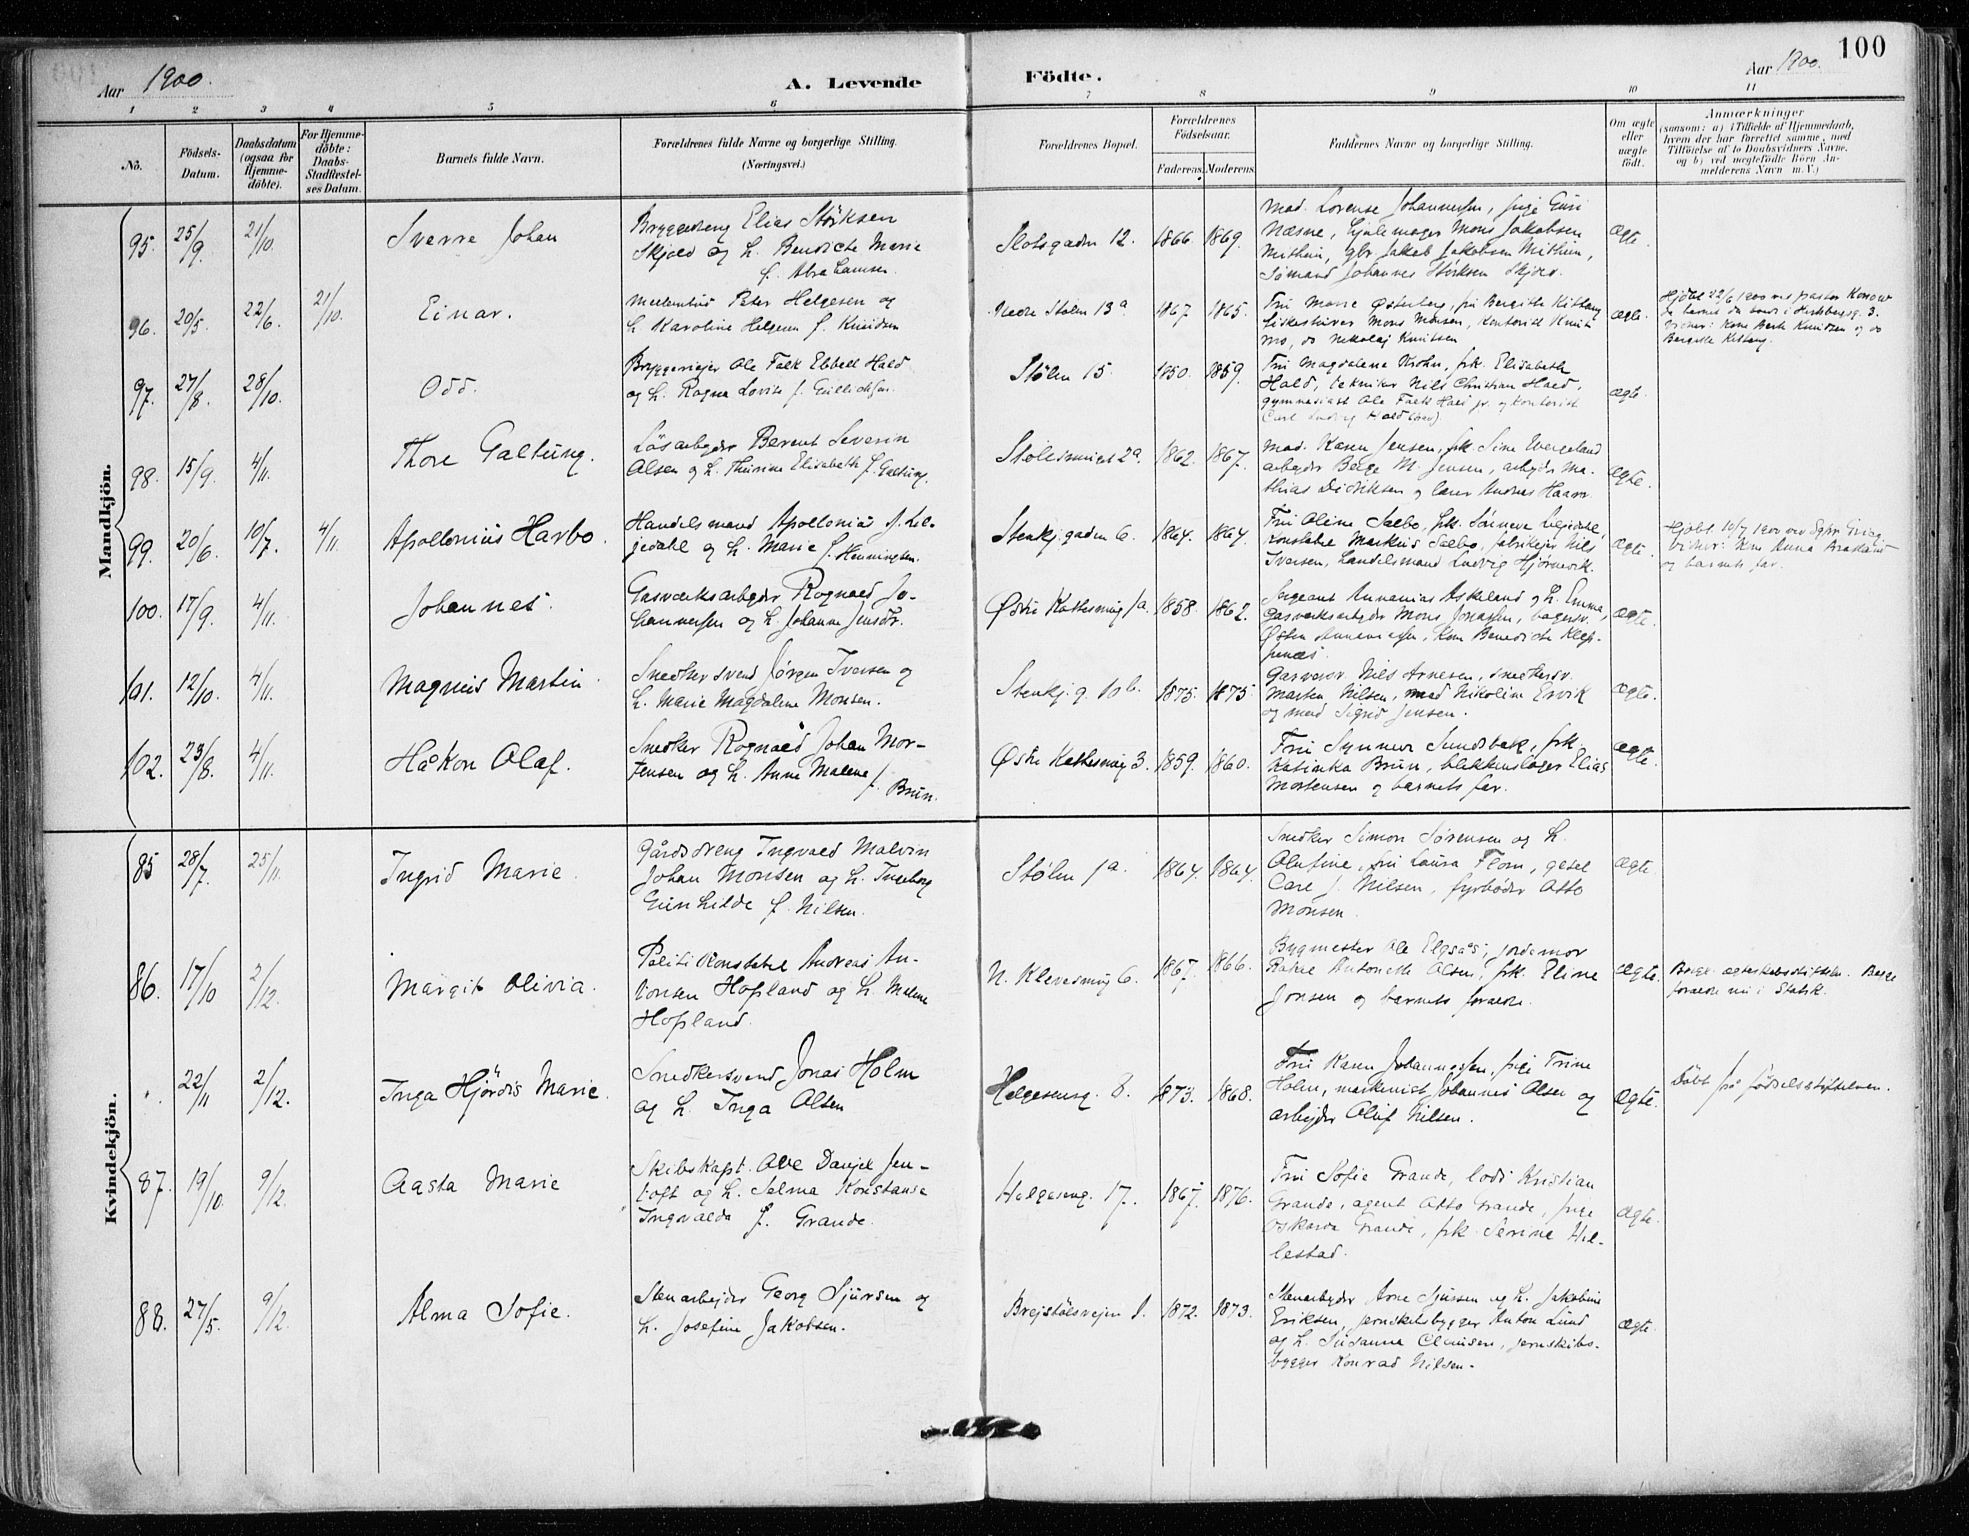 100
Aar 1900.
A. Levende
Födte.
Aar 1900.
1 2 3 4 5 6 7 8 9 10 11
No.
Födsels-Datum.
Daabsdatum (ogsaa for Hjemme-döbte).
For Hjemme-döbte: Daabs-Stadfæstel-ses Datum.
Barnets fulde Navn.
Forældrenes fulde Navne og borgerlige Stilling.
(Næringsvei.)
Forældrenes Bopæl.
Forældrenes Födselsaar.
Faderens. Moderens.
Faddernes Navne og borgerlige Stilling.
Om ægte eller uægte födt.
Anmærkninger
(saasom: a) i Tilfælde af Hjemmedaab,
hvem der har forrettet samme, med
Tilföielse af to Daabsvidners Navne,
og b) ved uægtefödte Börn An-
melderens Navn m. V.)
Mandkjön.
95. 25/9. 21/10. Sverre Johan
Elias Störksen
Skjold og h. Bendicte Marie
f. Abrahamsen.
Slotsgaden 12. 1866. 1869.
Mad. Lorense Johannessen, pige Guri
Næsne, hjulemager Mons Jakobsen
Mithun, gbr Jakob Jakobsen Mithun,
Sømand Johannes Störksen Skjold.
Ægte.
96. 20/5. 22/6. 21/10. Einar.
Peter Helgesen og
h. Karoline Helgesen f. Knudsen
Nedre Stølen 13a 1867. 1865.
Fru Marie Østerberg, fru Bergithe Kittang
Mons Monsen, Kontorist Knut
Mo, do Nikolaj Knutsen
Ægte.
97. 27/8. 28/10. Odd.
Bryggerieier Ole Falk Ebbell Hald
og h. Ragna Lovise f. Gullichsen.
Stølen 15. 1850. 1859.
Fru Magdalena Krohn, frk. Elisabeth
Hald, tekniker Nils Christian Hald,
gymnasiast Ole Falk Hald jr. og Kontorist
Carl Ludvig Hald
Ægte.
98. 15/9. 4/11. Thore Galtung.
Løsarbejder Berent Severin
Olsen og h. Thurine Elisabeth f. Galtung.
Stølesmuget 2a. 1862. 1867.
Mad. Karen Jensen, frk. Sine Evergeland
arbejder Berge M. Jensen, arbejder Ma-
thias Didriksen og lærer Andreas Haavr
Ægte.
99. 20/6. 10/7. 4/11. Apollonius Harbo.
Handelsmand Apollonius J. Lil-
jedahl og h. Marie f. Henningsen.
Stenkj. gaden 6. 1864. 1864.
Fru Oline Sælbo, frk. Sørine Liljedahl,
Konstabel Markus Sælbo, fabrikejer Nils
Iversen, handelsmand Ludvig Hjørnevik.
Ægte.
og barnets far.
100. 17/9. 4/11. Johannes.
Gasværksarbejder Rognald Jo-
hannessen og h. Johanne Jensdr.
Østre Kattesmug 1a. 1858. 1862.
Sergeant Annanias Askeland og h. Emma,
Gasværksarbejder Mons Jonassen, bagersv.
Kone Benedicte Klep-
penes.
Ægte.
101. 12/10. 4/11. Magnus Martin
Snedkersvend Jørgen Iversen og
h. Marie Magdalene Monsen.
Stenkj. g. 10b. 1875. 1875.
Garversv. Nils Arnesen, snedkersv.
Martin Nilsen, mad Nikoline Ervik
og mad Sigrid Jensen.
Ægte.
102. 23/8. 4/11. Håkon Olaf.
Snedker Rognald Johan Mor-
tensen og h. Anne Malene f.
Brun.
Østre Kattesmug 3. 1859. 1860.
Fru Synneve Sundsbak, frk
Katinka Brun, blikkenslager Elias
Mortensen og barnets far.
Ægte.
Kvindekjön.
85 28/7. 25/11. Ingrid Marie.
Gårdsdreng Ingvald Malvin
Johan Monsen og h. Ingeborg
Gunhilde f. Nilsen.
Stølen 1a. 1864. 1864.
Snedker Simon Sørensen og h.
Olufine, fru Laura Flom, gesel
Carl J. Nilsen, fyrbøder Otto
Monsen.
Ægte.
86. 17/10 2/12. Margit Olivia.
Politikonstabel Andreas An-
tonsen Hopland og h. Malene
Hopland.
N. Klevesmug 6. 1867. 1866.
Bygmester Ole Elgsås, jordemor
Rakel Antonette Olsen, frk. Eline
Jonsen og barnets forældre.
Ægte.
Borgl. ægteskabsstiftelse. Begge
forældre nu i Statsk.
". 22/11 2/12. Inga Hjördis Marie.
Snedkersvend Jonas Holm
og h. Inga Olsen
Helgesensg. 8. 1873. 1868.
Fru Karen Johannessen, pige Trine
Holm, maskinist Johannes Olsen og
arbejder Oluf Nilsen.
Ægte.
Döbt på födselsstiftelsen.
87. 19/10. 9/12. Aasta Marie
Skibskapt. Ole Daniel Jen-
toft og h. Selma Konstanse
Ingvalda f. Grande.
Helgeseng. 17. 1867. 1876.
Fru Sofie Grande, lods Kristian
Grande, agent Otto Grande, pige
Oskarda Grande, frk. Serine Hil-
lestad.
Ægte.
88. 27/5. 9/12. Alma Sofie.
Stenarbejder Georg Sjursen og
h. Josefine Jakobsen.
Brejstölsvejen 1. 1872. 1873.
Stenarbejder Arne Sjursen og h. Jakobine
Eriksen, jernskibsbygger Anton Lund
og h. Susanna Clausen, jernskibs-
bygger Konrad Nilsen.
Ægte.